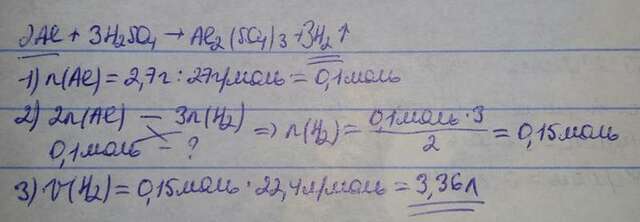 2Al + 3H₂SO₄ → Al₂(SO₄)₃ + 3H₂↑
1) n(Al) = 2,7г : 27г/моль = 0,1моль
2) 2n(Al) — 3n(H₂) ⇒ n(H₂) = (0,1моль · 3)/2 = 0,15моль
0,1моль – ?
3) V(H₂) = 0,15моль · 22,4л/моль = 3,36л